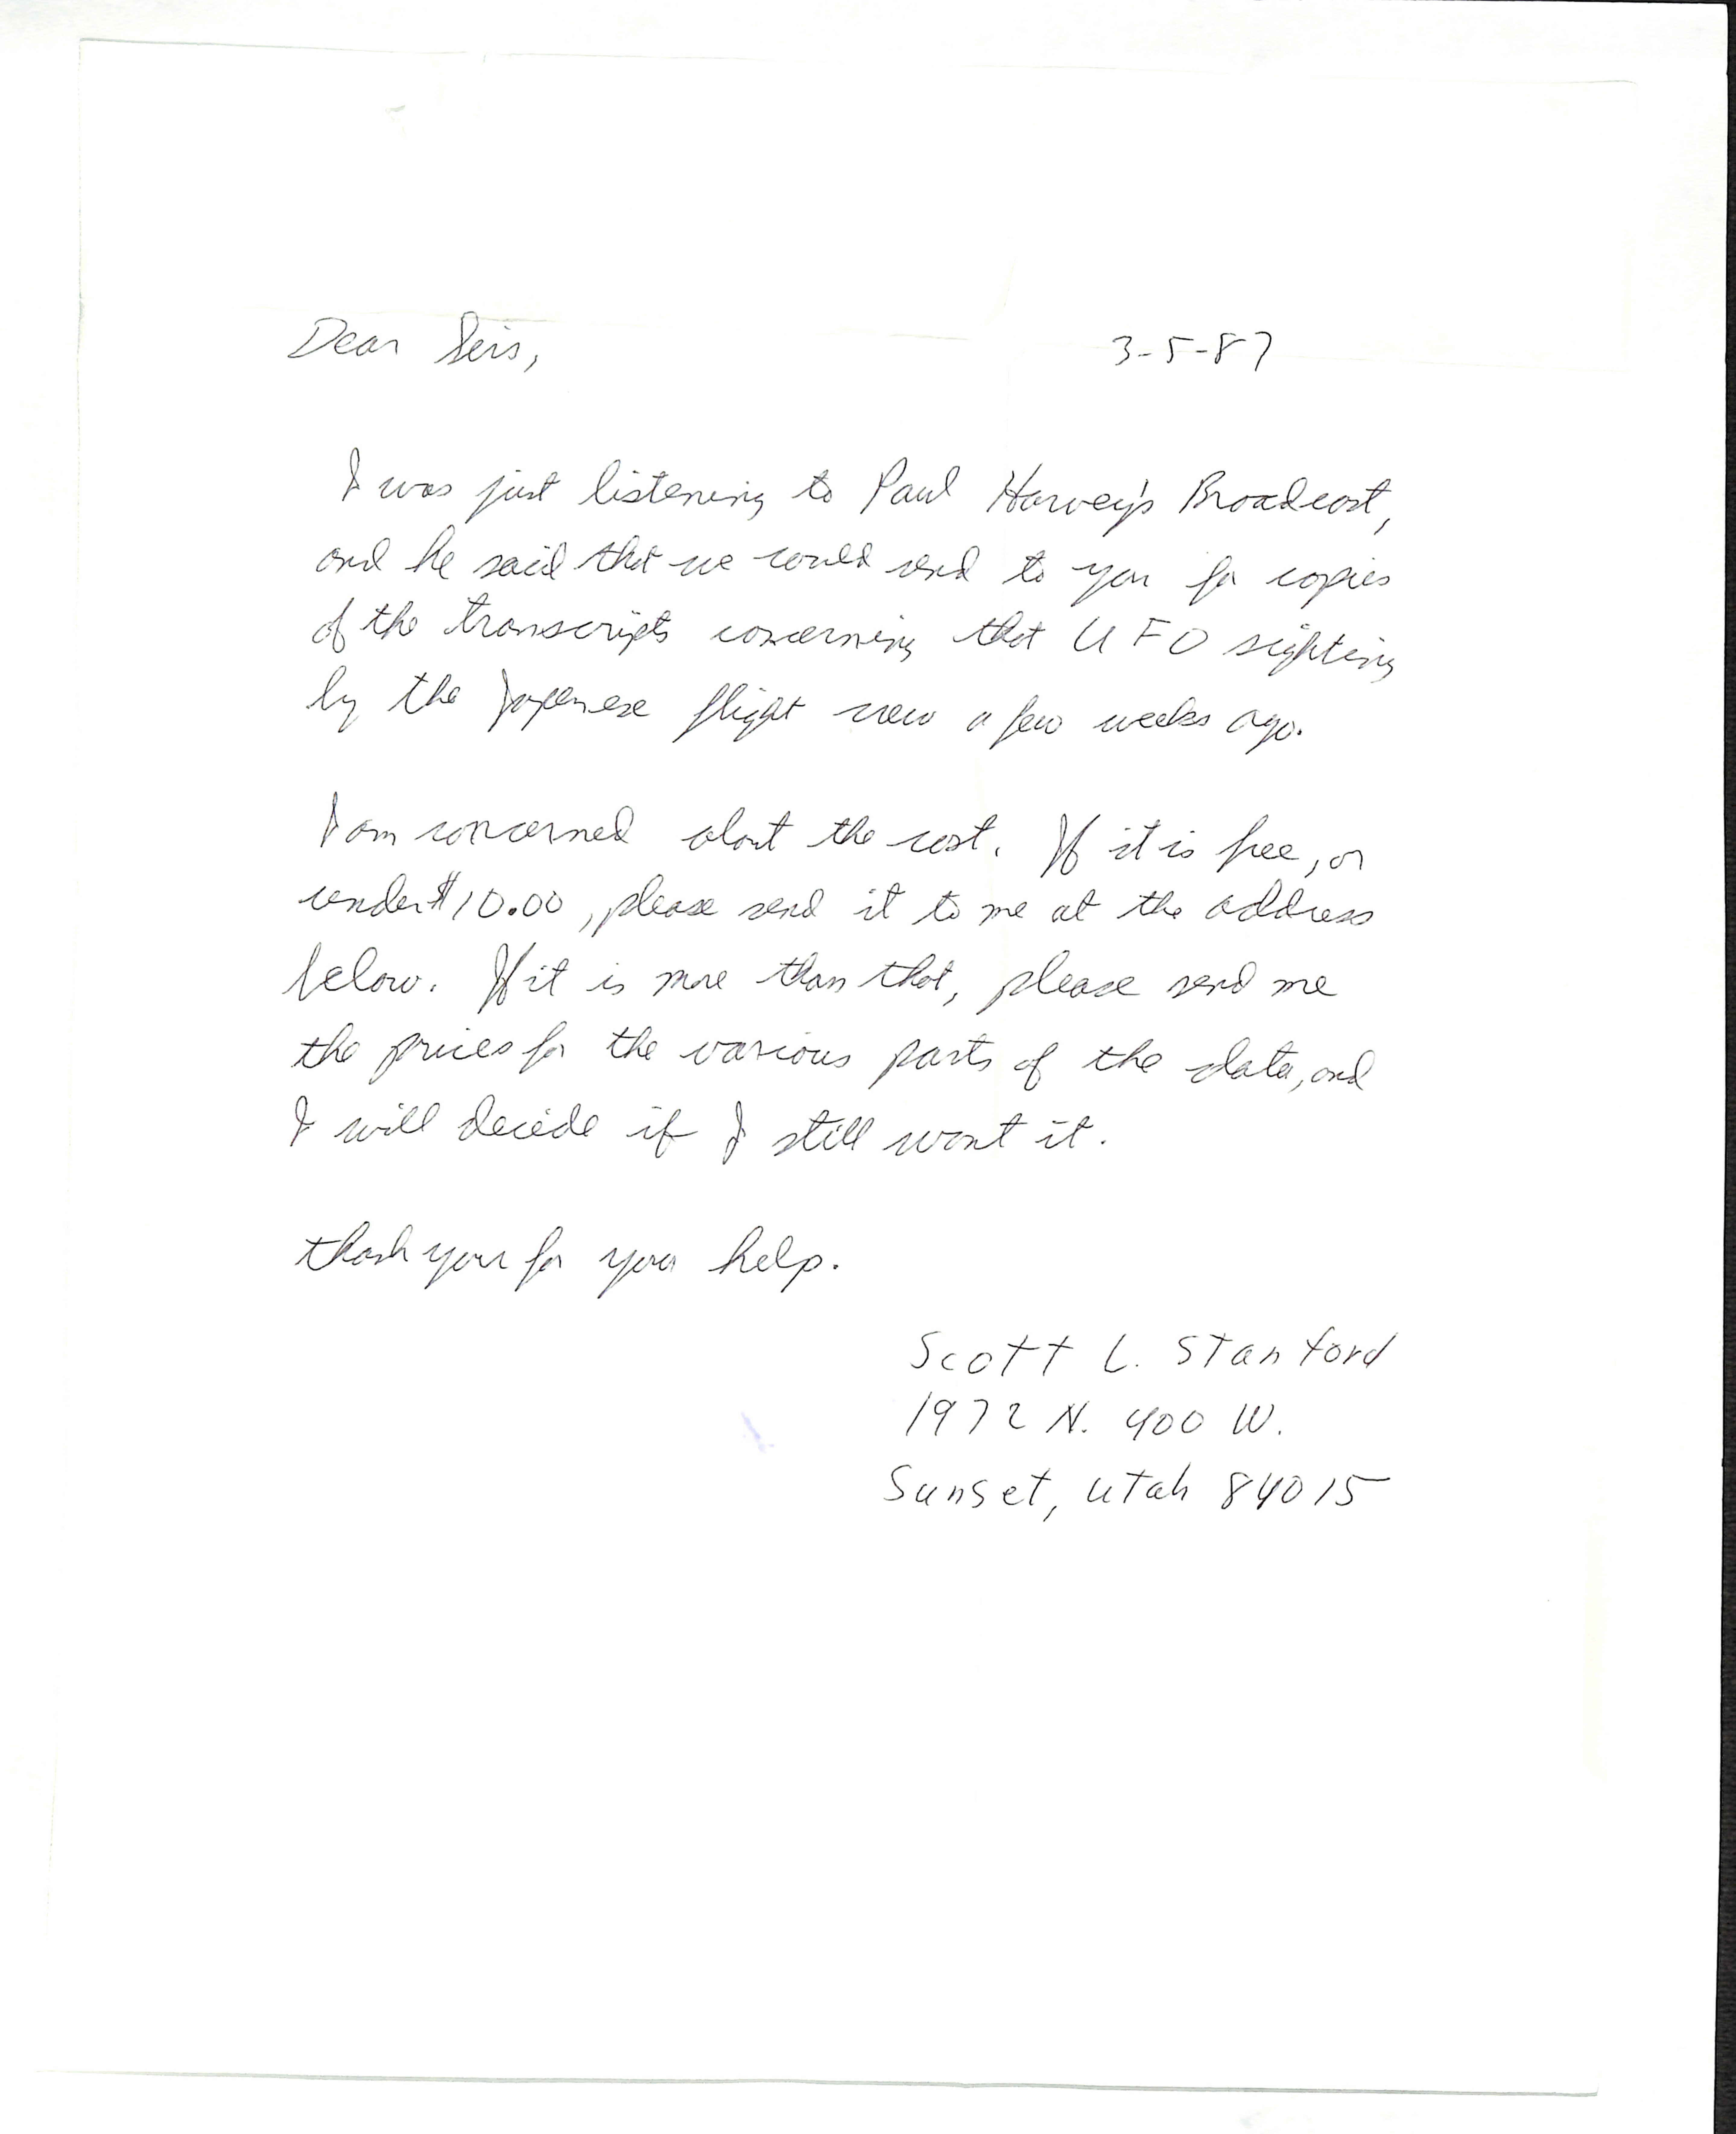 Dear Sirs,
3-5-87
I was just listening to Paul Harvey's Broadcast,
and he said that we could send to you for copies
of the transcripts concerning that UFO sighting
by the Japenese flight crew a few weeks ago.
I am concerned about the cost. If it is free, or
under $10.00, please send it to me at the address
below. If it is more than that, please send me
the prices for the various parts of the data, and
I will decide if I still want it.
thank you for you help.
Scott L. Stanford
1972 N. 400 W.
Sunset, Utah 84015